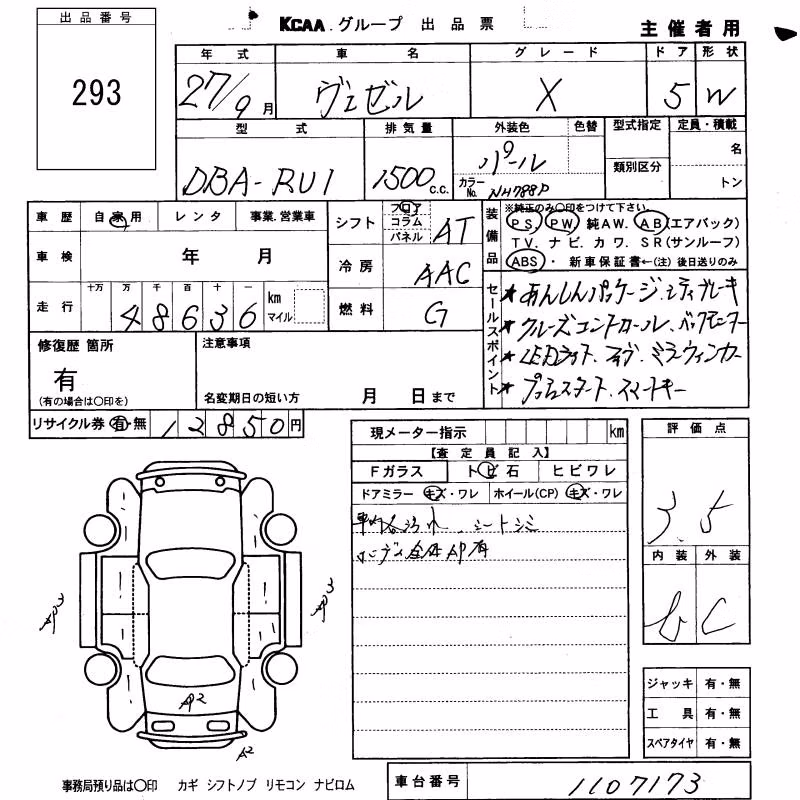 出品番号
293
KCAA.グループ 出品票
主催者用
年式 車名 グレード ドア 形状
27/9月 ヴェゼル X 5 W
型式 排気量 外装色 色替 型式指定 定員・積載
DBA-RU1 1500c.c. パール
カラーNo. NH788P
類別区分
名
トン
車歴 自家用 レンタ 事業.営業車
車検 年 月
走行 十万 万 千 百 十 一
48636 km マイル
シフト フロア コラム パネル AT
冷房 AAC
燃料 G
装備品
※純正のみ○印をつけて下さい。
PS. PW 純AW. AB(エアバック)
TV. ナビ. カワ. SR(サンルーフ)
ABS・ 新車保証書←(注) 後日送りのみ
セールスポイント
★あんしんパッケージ.シティブレーキ
★クルーズコントロール、バックモニター
★LEDライト. ナビ. ミラーウィンカー
★プッシュスタート. スマートキー
修復歴 箇所
有
(有の場合は○印を)
注意事項
名変期日の短い方 月 日まで
リサイクル券 有・無 12850円
現メーター指示 km
【査定員記入】
Fガラス トビ石 ヒビワレ
ドアミラー キズ・ワレ ホイール(CP) キズ・ワレ
車内汚れ シートシミ
評価点
3.5
内装 外装
b C
AP3
AP3
AP2
A2
ジャッキ 有・無
工具 有・無
スペアタイヤ 有・無
事務局預り品は○印 カギ シフトノブ リモコン ナビロム
車台番号 1107173